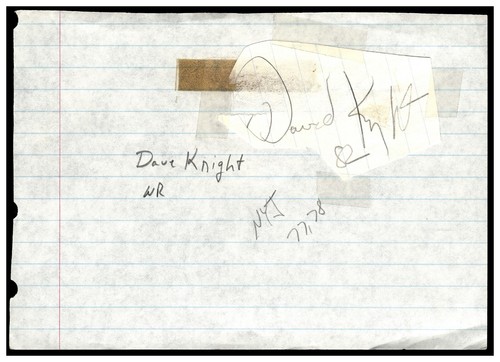 David Knight
82
Dave Knight
WR
NYJ
77,78